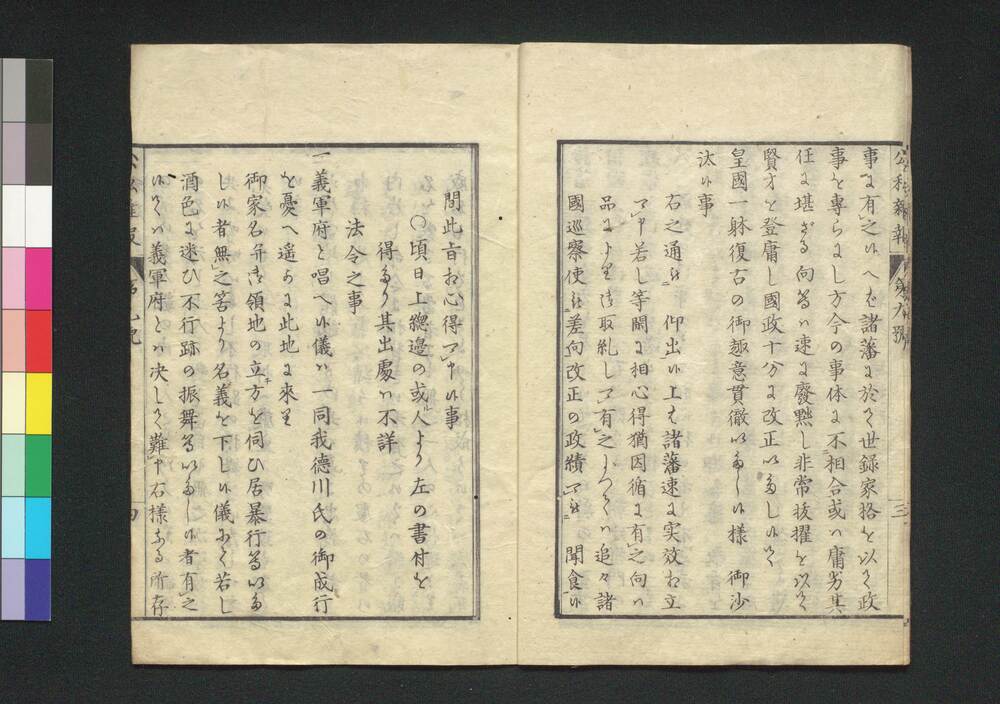 公私雑報 第九號 三
事に有之候へども諸藩に於て世録家格を以て政
事を専らにし方今の事体に不相合或ハ庸劣其
任に堪ざる向等ハ速に廢黙し非常抜擢を以て
賢才を登庸し國政十分に改正いたし候て
皇國一躰復古の御趣意貫徹いたし候様 御沙
汰候事
右之通被 仰出候上者諸藩速に実效相立
可申若し等閑に相心得猶因循に有之向ハ
品により御取糺し可有之よつてハ追々諸
國巡察使被差向改正の政績可被 聞食候
間此旨相心得可申候事
〇頃日上總邉の或人より左の書付を
得たり其出處ハ不詳
法令之事
一義軍府と唱へ候儀ハ一同我德川氏の御成行
を憂へ遥々此地に來り
御家名并御領地の立方を伺ひ居暴行等いたし
候者無之筈より名義を下し候儀にて若し
酒色に迷ひ不行跡の振舞等いたし候者有之
候てハ義軍府とハ决しがて難申右様なる所存
四